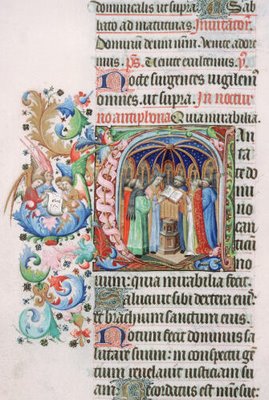 dominicalis ut supra. Sab
bato ad matutinas. Invitator.
Dominum deum nrm. Venite adore
mus. ps. Venite exultemus. ps.
Nocte surgentes vigilem
omnes. ut supra. In noctur
no antiphona Quia mirabilia
C An
ta
te do
mi
no
can
no
vum: quia mirabilia fecit.
Salvavit sibi dextera eius:
et brachium sanctum eius.
Notum fecit dominus sa
lutare suum: in conspectu gen
revelavit iusticiam su
am. Recordatus est mise